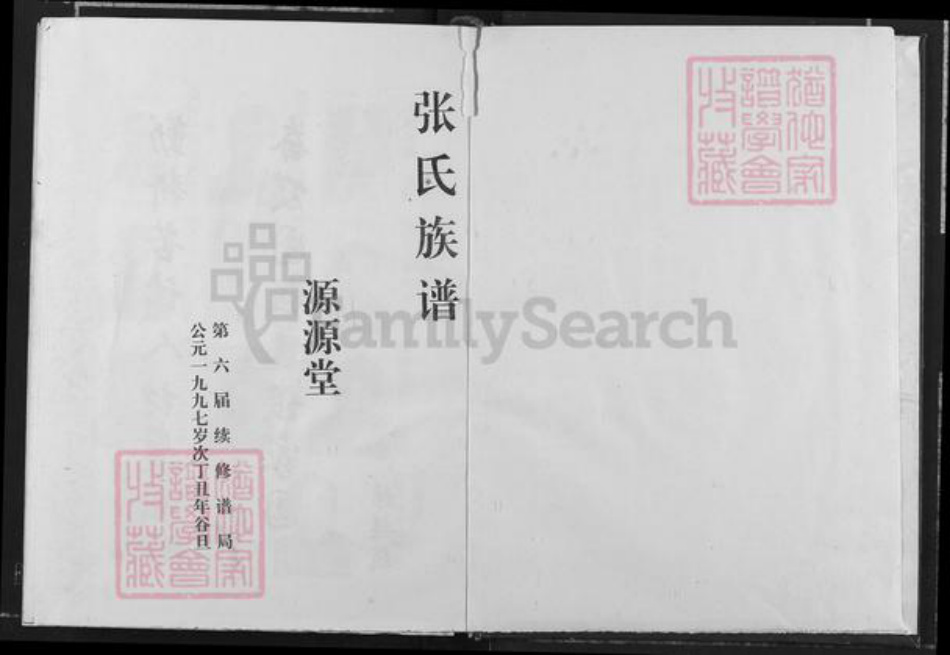 猶他家
譜學會
收藏
张氏族谱
源源堂
第六届续修谱局
公元一九九七岁次丁丑年谷旦
猶他家
譜學會
收藏
FamilySearch